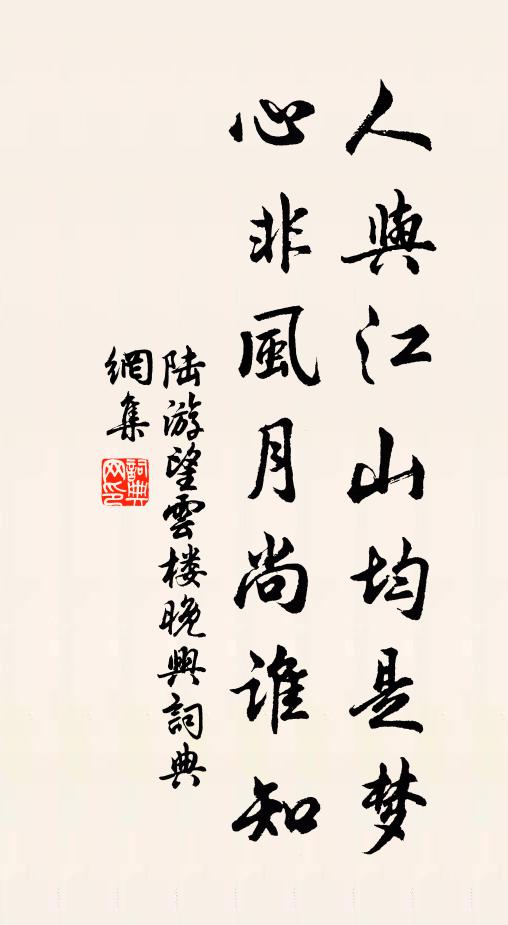 人與江山均是梦
心非風月尚谁知
陆游望雲楼晚興詞典
網集
詞典
网印